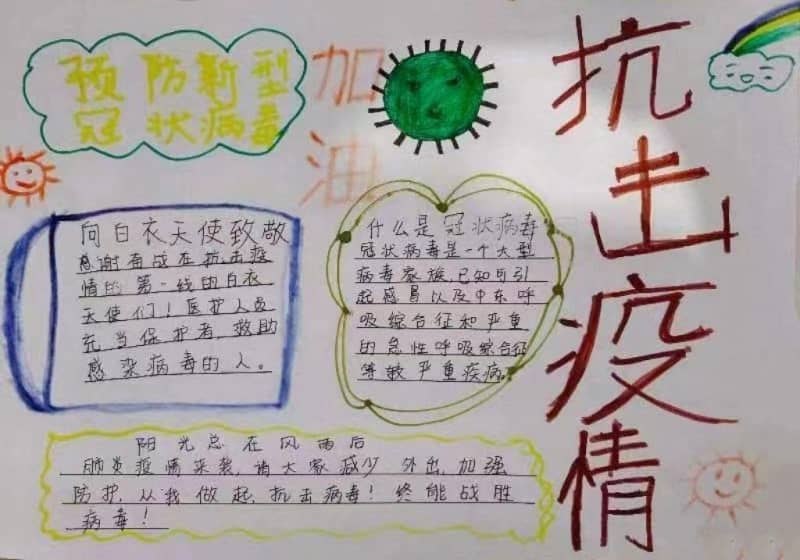 预防新型
冠状病毒
加油
抗击疫情
向白衣天使致敬
感谢奋战在抗击疫
情的第一线的白衣
天使们！医护人员
充当保护者，救助
感染病毒的人。
什么是冠状病毒
冠状病毒是一个大型
病毒家族，已知可引
起感冒以及中东呼
吸综合征和严重
的急性呼吸综合征
等较严重疾病。
阳光总在风雨后
肺炎疫情来袭，请大家减少外出，加强
防护，从我做起，抗击病毒！终能战胜
病毒！